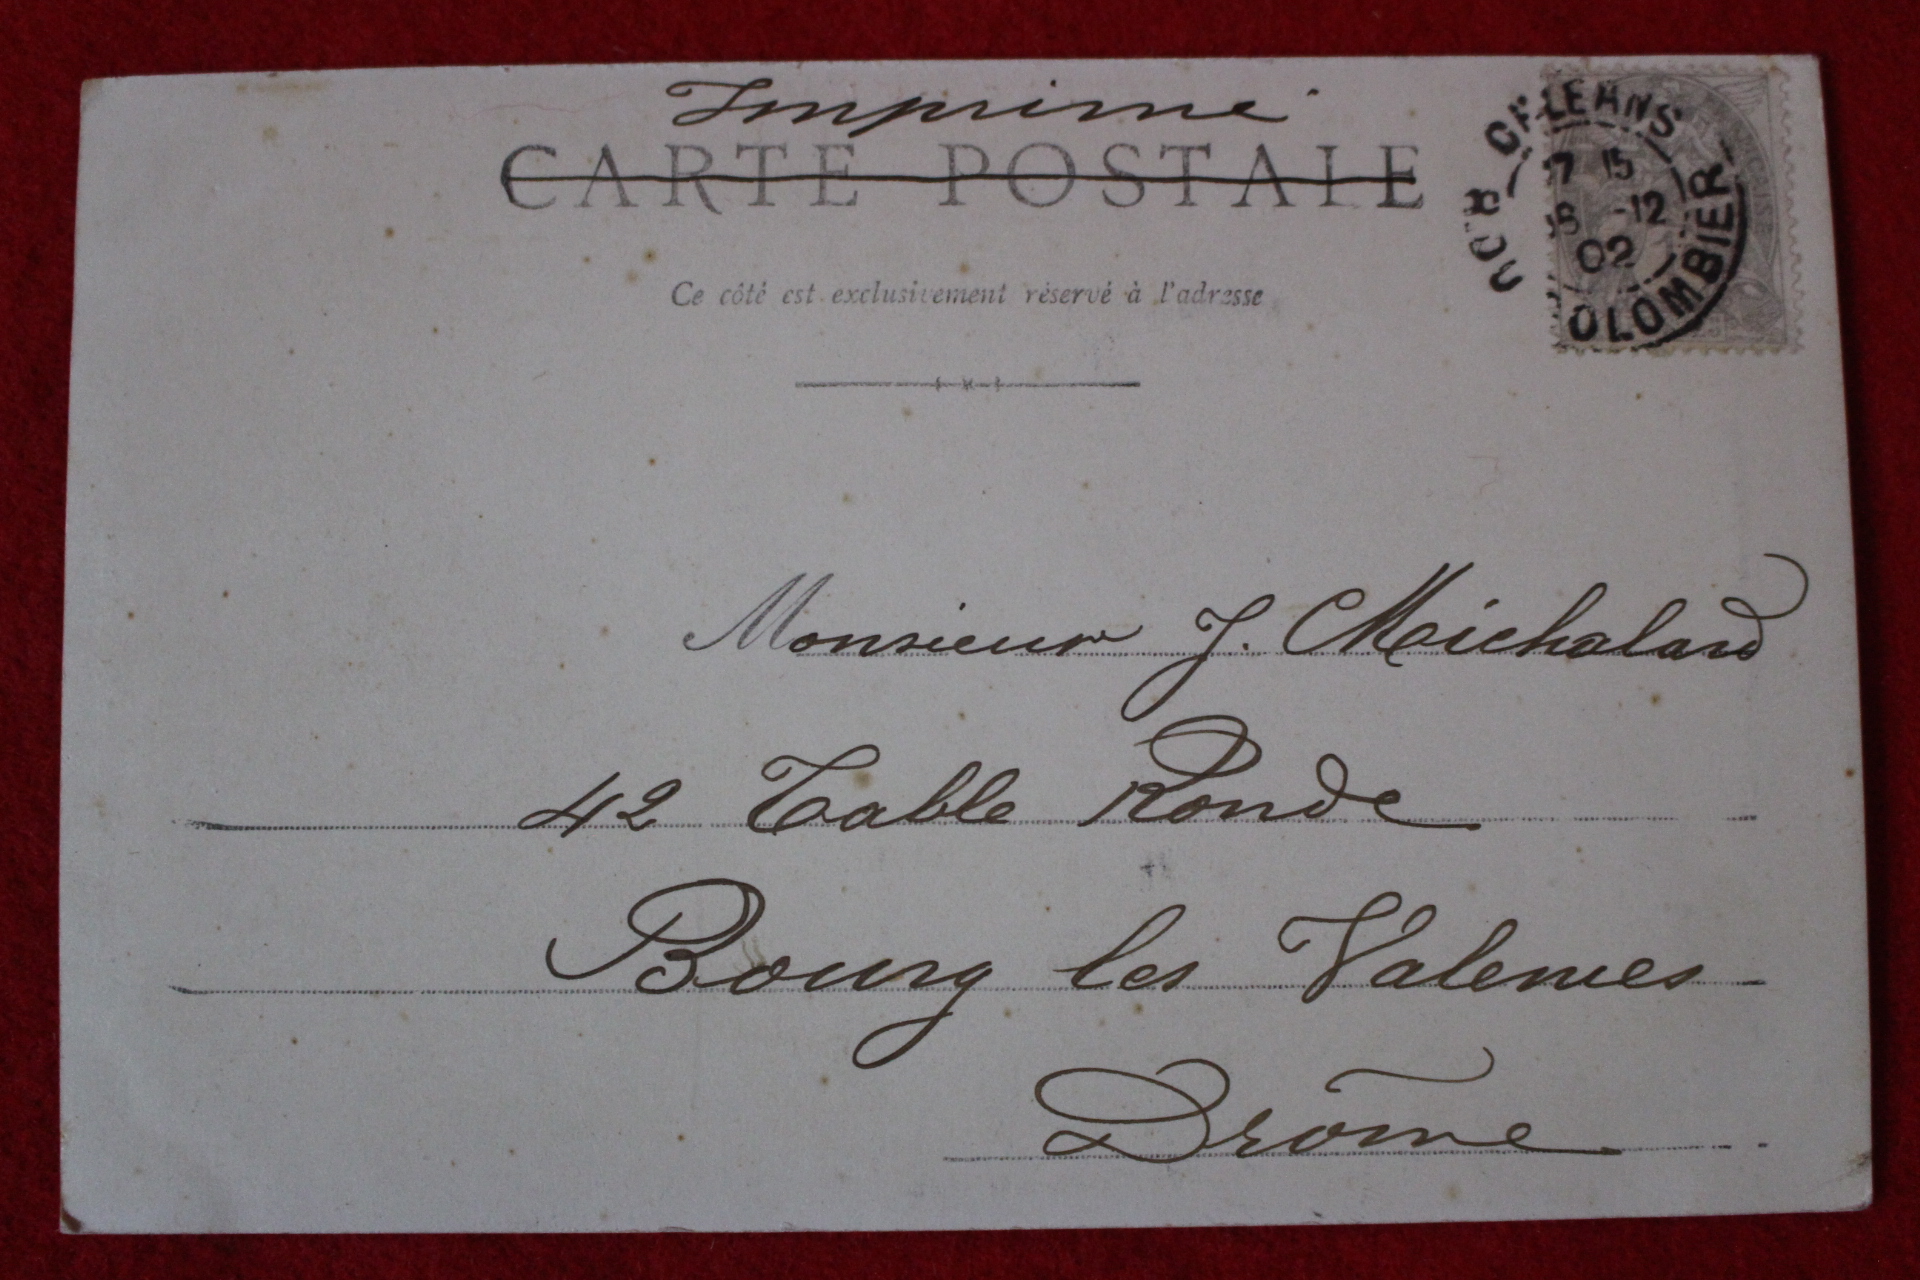 Imprimé
CARTE POSTALE
ORLEANS
17 15
-12
02
R. DU COLOMBIER
Ce côté est exclusivement réservé à l'adresse
Monsieur J. Michalard
42 Table Ronde
Bourg les Valences
Drôme